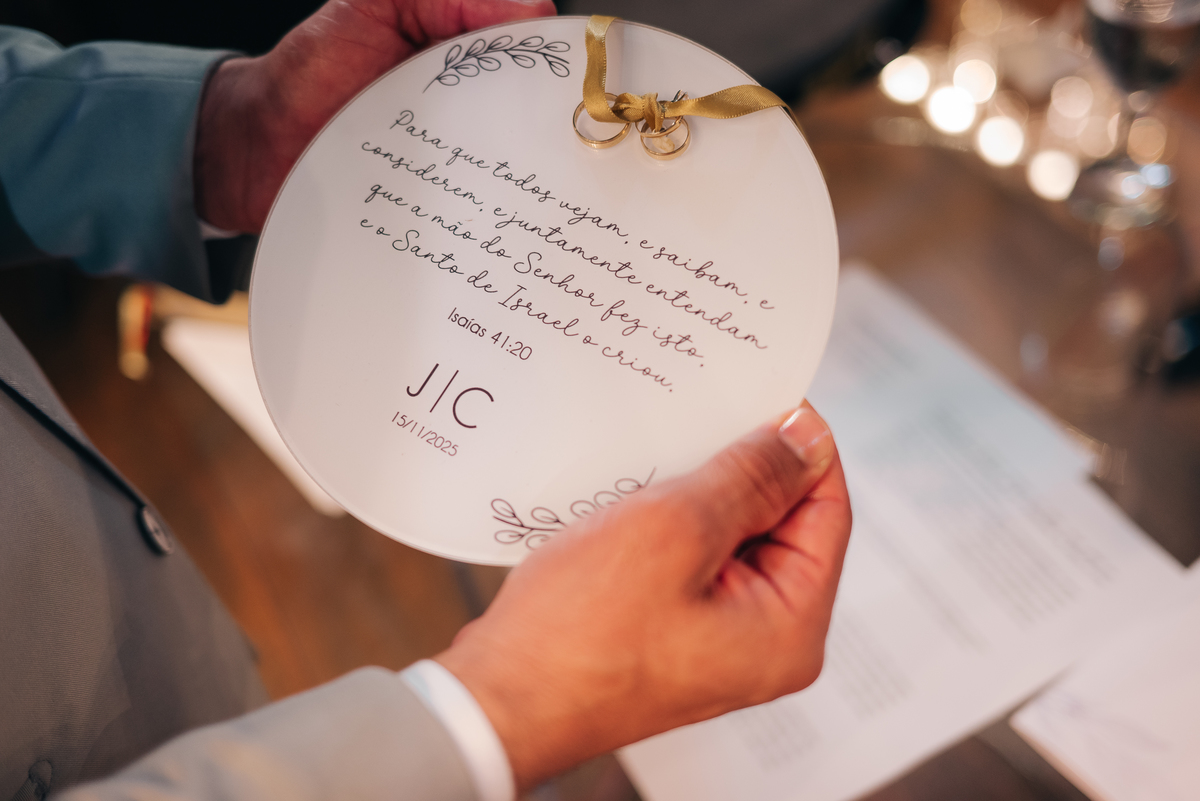 Para que todos vejam, e saibam, e
considerem, e juntamente entendam
que a mão do Senhor fez isto.
e o Santo de Israel o criou.
Isaías 41:20
J|C
15/11/2025